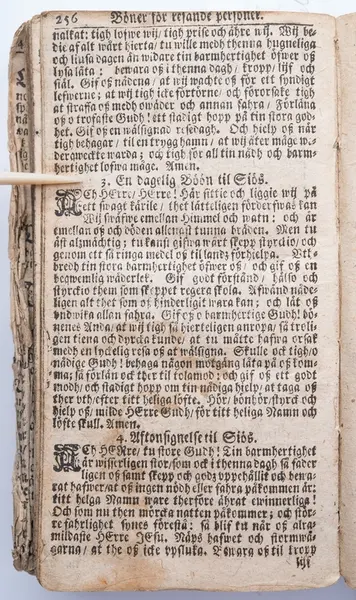 256 Böner för resande personer.
nalkat: tigh lofwe wij, tigh prise och ähre wij. Wij be-
die af alt wårt hierta / tu wille medh thenna hugneliga
och liusa dagen än widare tin barmhertighet öfwer oß
lysa låta: bewara oß i thenna dagh / kropp / lijf och
siäl. Gif oß nåden / at wij wachte oß för ett syndigt
lefwerne; at wij tigh icke förtörne / och förorsake tigh
at straffa oß medh owäder och annan fahra / Förläna
oß o trofaste Gudh! ett stadigt hopp på tin stora god-
het. Gif oß en wälsignad resedagh. Och hielp oß när
tigh behagar / til en trygg hamn / at wij åter måge we-
derqweckte warda; och tigh för all tin nådh och barm-
hertighet lofwa måge. Amen.
3. En dagelig Böön til Siös.
ACh HErre / HErre! Här sittie och liggie wij på
ett swagt kärile / thet lätteligen förderfwas kan
Wij swäfwe emellan Himmel och watn: och är
emellan oß och döden allenast tunna bräden. Men tu
äst alzmächtig; tu kanst gifwa wårt skepp styrdio / och
genom ett så ringa medel oß til landz förhielpa. Ut-
bredh tin stora barmhertighet öfwer oß / och gif oß en
beqwemlig wäderlek. Gif godt förstånd / hälso och
styrckio them som skeppet regera skola. Afwänd nåde-
ligen alt thet som oß hinderligit wara kan; och låt oß
undwika allan fahra. Gif oß o barmhertige Gudh! bö-
nenes Anda / at wij tigh så hierteligen anropa / så troli-
gen tiena och dyrcka kunde / at tu måtte hafwa orsak
medh en lyckelig resa oß at wälsigna. Skulle ock tigh / o
nådige Gudh! behaga någon motgång låta på oß kom-
ma; så förlän ock ther til tolamod; och gif oß ett godt
modh / och stadigt hopp om tin nådiga hielp / at taga oß
ther uth / efter titt heliga löfte. Hör / bönhör / styrck och
hielp oß / milde HErre Gudh / för titt heliga Namn och
löfte skull. Amen.
4. Aftonsignelse til Siös.
ACh HErre / tu store Gudh! Tin barmhertighet
är wisserligen stor / som ock i thenna dagh så fader
ligen oß samt skepp och godz uppehållit och bewa-
rat hafwer / at oß ingen nödh eller fahra påkommen är:
titt helga Namn ware therföre ährat ewinnerliga!
Och som nu then mörcka natten påkommer; och stör-
re fahrlighet synes förestå: så blif tu när oß alra-
mildaste HErre JEsu. Näps hafwet och stormwä-
garna / at the oß icke upsluka. Bewara oß til kropp